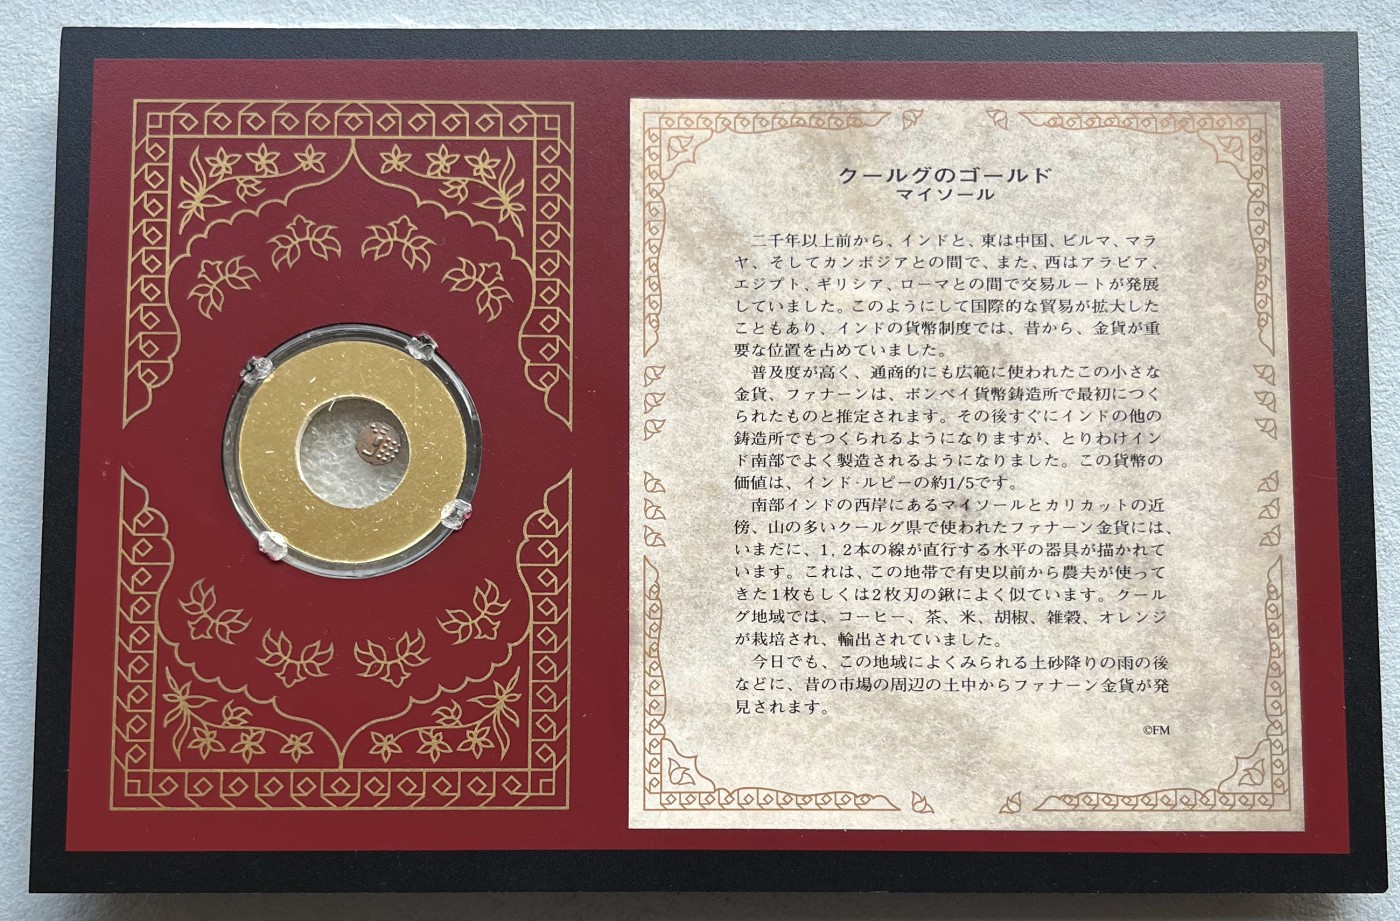 クールグのゴールド
マイソール
二千年以上前から、インドと、東は中国、ビルマ、マラ
ヤ、そしてカンボジアとの間で、また、西はアラビア、
エジプト、ギリシア、ローマとの間で交易ルートが発展
していました。このようにして国際的な貿易が拡大した
こともあり、インドの貨幣制度では、昔から、金貨が重
要な位置を占めていました。
普及度が高く、通商的にも広範に使われたこの小さな
金貨、ファナーンは、ボンベイ貨幣鋳造所で最初につく
られたものと推定されます。その後すぐにインドの他の
鋳造所でもつくられるようになりますが、とりわけイン
ド南部でよく製造されるようになりました。この貨幣の
価値は、インド·ルピーの約1/5です。
南部インドの西岸にあるマイソールとカリカットの近
傍、山の多いクールグ県で使われたファナーン金貨には、
いまだに、1, 2本の線が直行する水平の器具が描かれて
います。これは、この地帯で有史以前から農夫が使って
きた1枚もしくは2枚刃の鍬によく似ています。クール
グ地域では、コーヒー、茶、米、胡椒、雑穀、オレンジ
が栽培され、輸出されていました。
今日でも、この地域によくみられる土砂降りの雨の後
などに、昔の市場の周辺の土中からファナーン金貨が発
見されます。
©FM